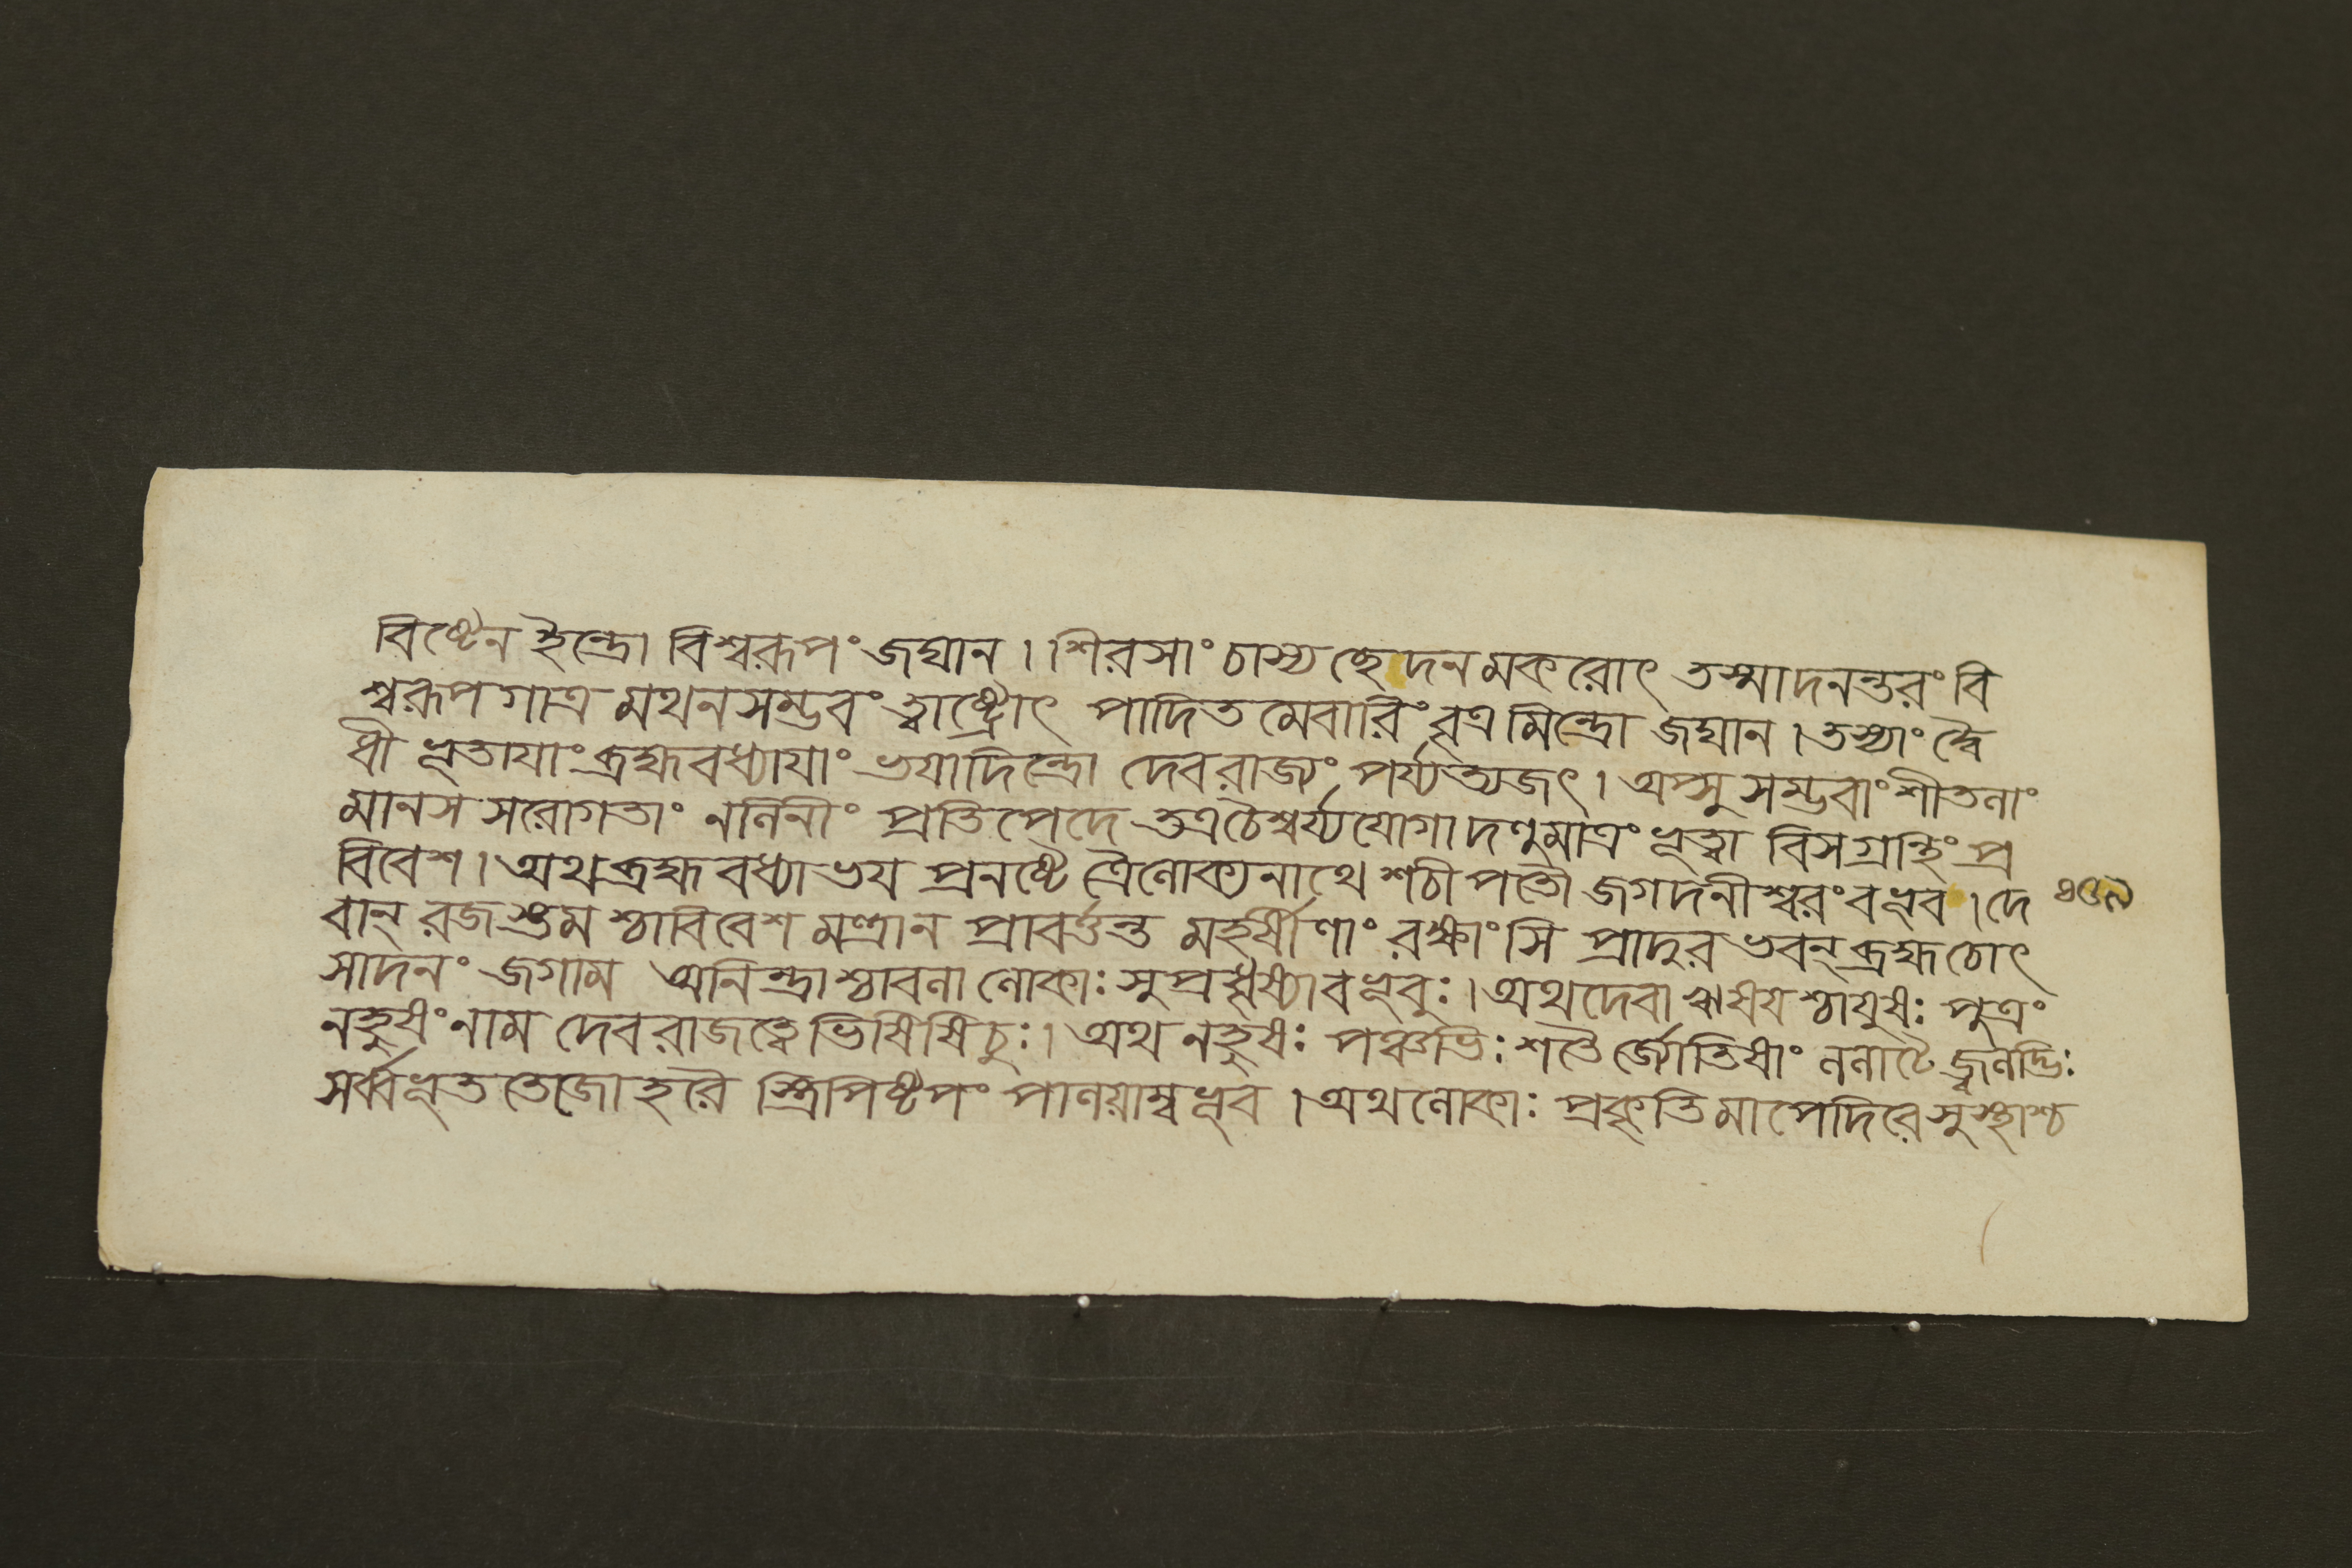 বিষ্টেন ইন্দ্রো বিশ্বরূপং জঘান । শিরসাং চাস্য ছেদনমকরোৎ তস্মাদনন্তরং বি
শ্বরূপগাত্রমথনসম্ভবং ত্বাষ্ট্রোৎ পাদিতমেবারিং বৃত্রমিন্দ্রো জঘান । তস্যাং দ্বৈ
ধী ভূতাযাং ব্রহ্মবধ্যাযাং ভযাদিন্দ্রো দেবরাজ্যং পর্য্যত্যজৎ । অপ্সু সম্ভবাং শীতলাং
মানস সরোগতাং নলিনীং প্রতিপেদে তত্রচৈশ্বর্য্যযোগাদণুমাত্রং ভূত্বা বিসগ্রন্থিং প্র
বিবেশ । অথ ব্রহ্মবধ্যাভয প্রনষ্টে ত্রৈলোক্যনাথে শচীপতৌ জগদনীশ্বরং বভূব । দে
বান্ রজস্তমশ্চাবিবেশ মন্ত্রান প্রাবর্ত্তন্ত মহর্ষীণাং রক্ষাংসি প্রাদুরভবন্ ব্রহ্মচোৎ
সাদনং জগাম অনিন্দ্রাশ্চাবলা লোকাঃ সুপ্রধৃষ্যাবভূবুঃ । অথ দেবা ঋষযশ্চাযুষঃ পুত্রং
নহুষং নাম দেবরাজত্বেভিষিষিচুঃ । অথ নহুষঃ পঞ্চভিঃ শতৈর্জ্যোতিষাং ললাটে জ্বলদ্ভিঃ
সর্ব্বভূততেজোহরৈ স্ত্রিপিষ্টপং পালয়াম্বভূব । অথ লোকাঃ প্রকৃতিমাপেদিরে সুস্থাশ্চ